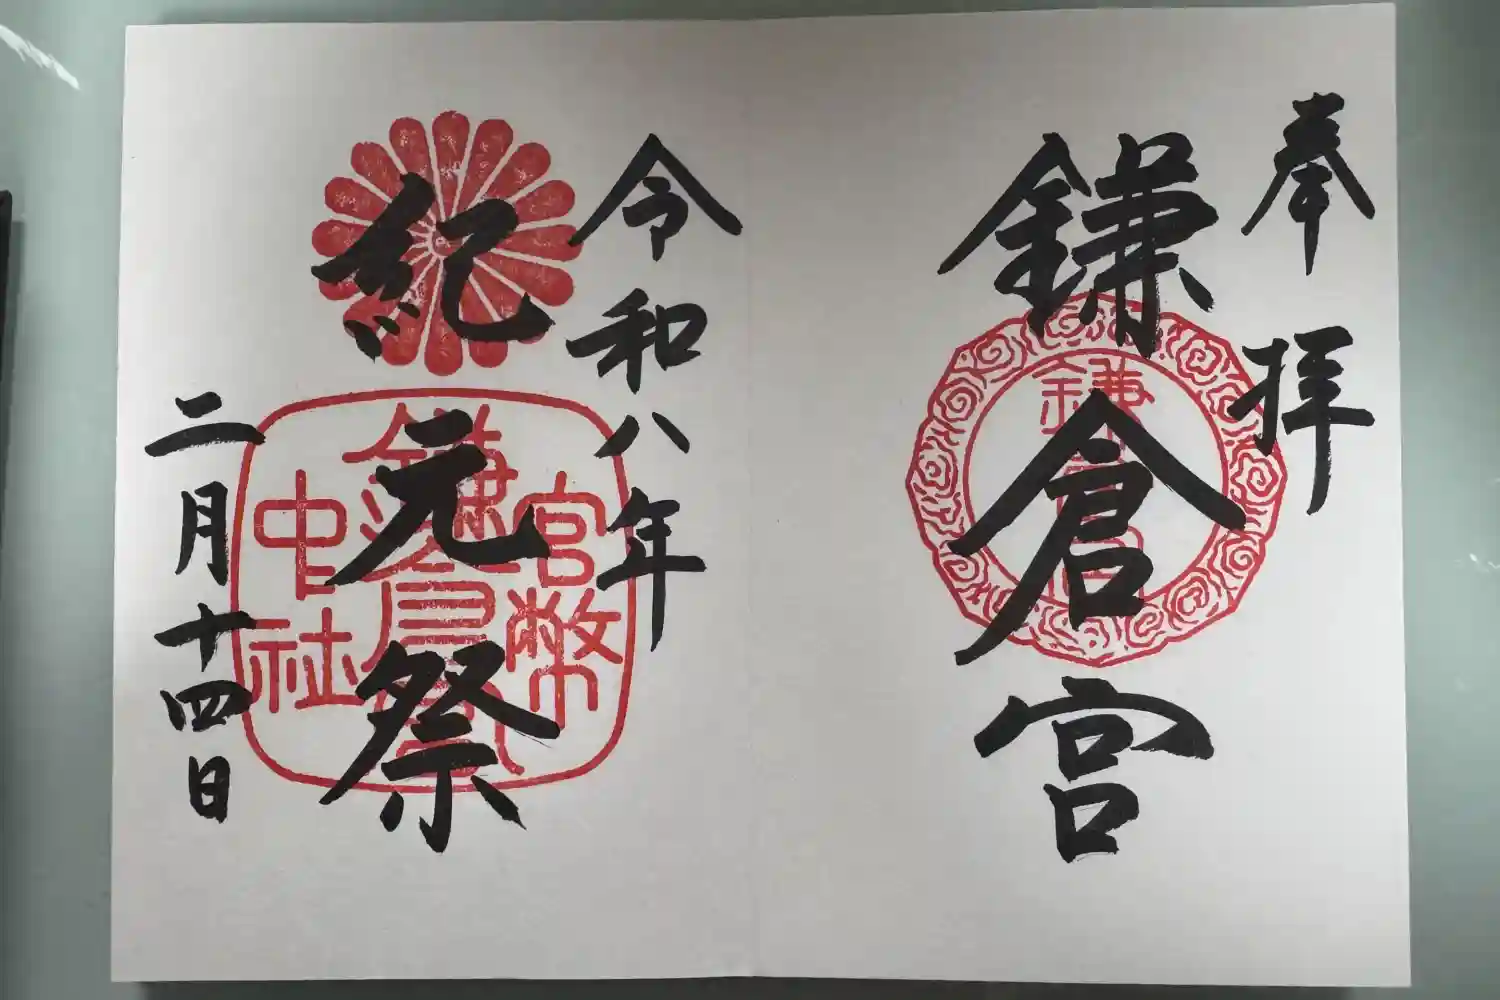 奉拝
鎌倉宮
鎌倉宮
令和八年
紀元祭
鎌倉宮
官幣
中社
二月十四日